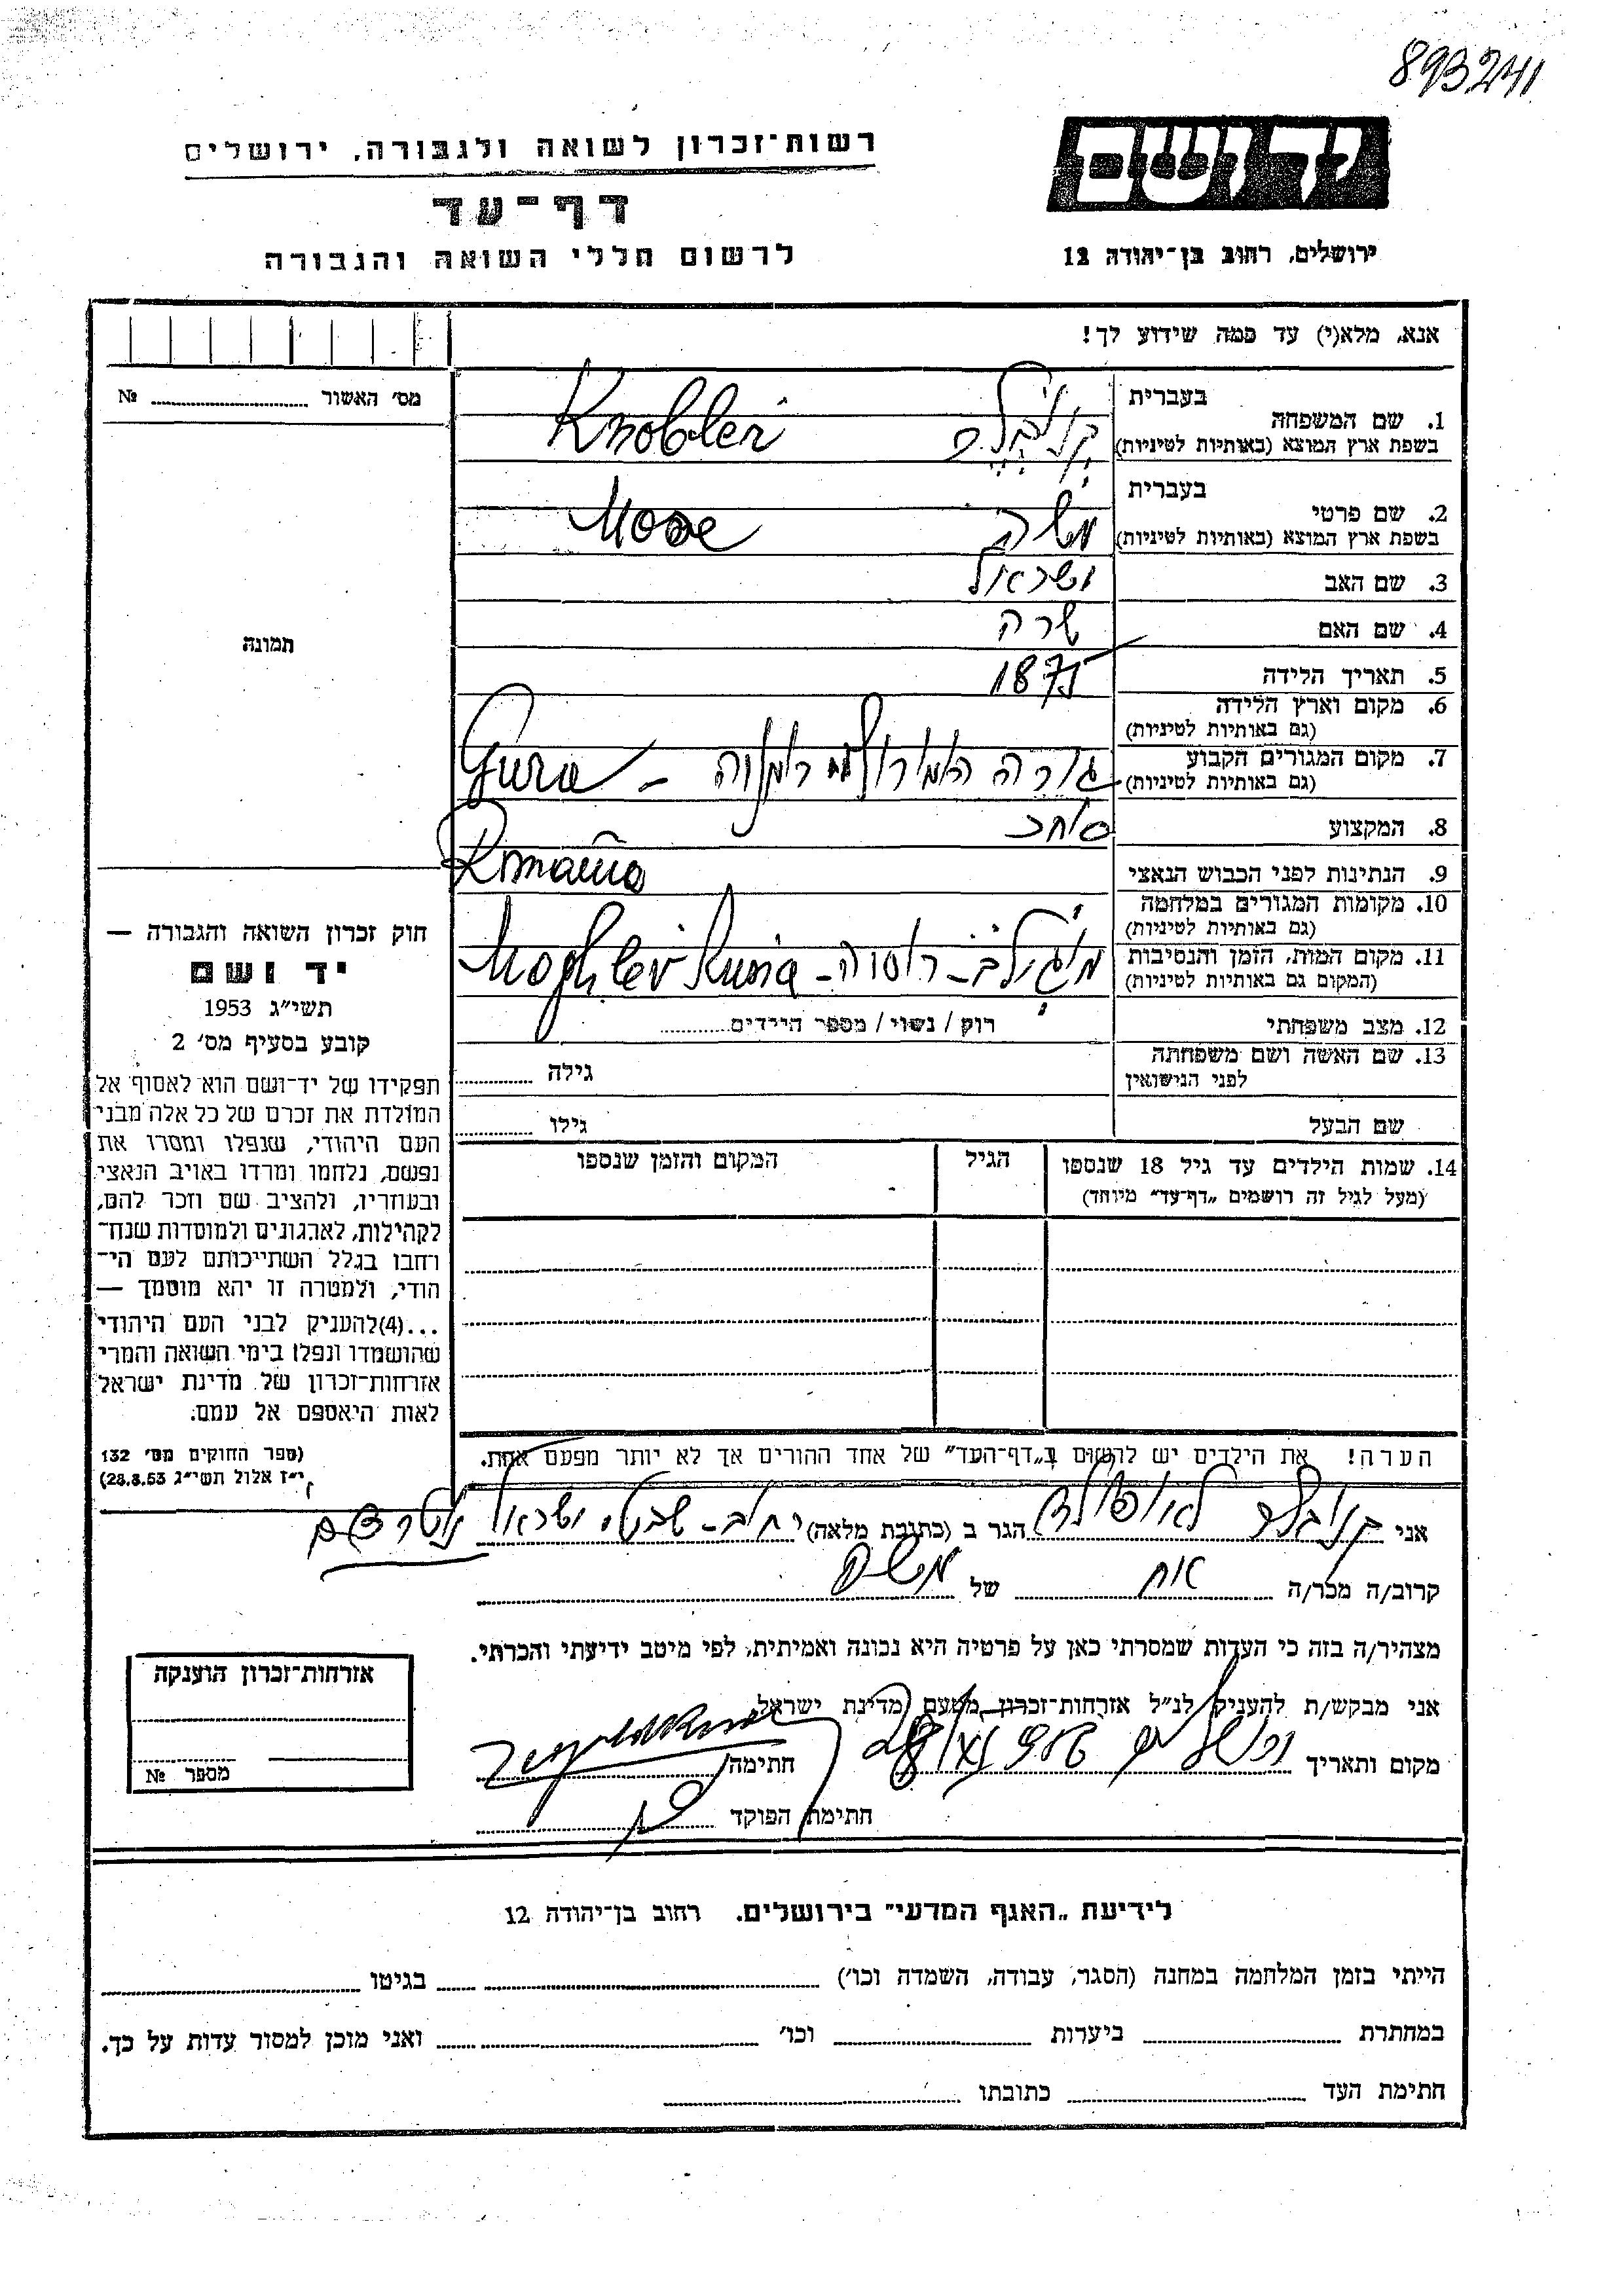 893241
רשות־זכרון לשואה ולגבורה, ירושלים
יד ושם
דף־עד
לרשום חללי השואה והגבורה
ירושלים, רחוב בן־יהודה 12
אנא, מלא(י) עד כמה שידוע לך!
מס׳ האשור № 
1. שם המשפחה בעברית
בשפת ארץ המוצא (באותיות לטיניות)
Knobler
2. שם פרטי בעברית משה
בשפת ארץ המוצא (באותיות לטיניות)
3. שם האב ישראל
4. שם האם שרה
תמונה
5. תאריך הלידה 1871
6. מקום וארץ הלידה
(גם באותיות לטיניות)
7. מקום המגורים הקבוע
(גם באותיות לטיניות)
Gura
8. המקצוע סוחר
9. הנתינות לפני הכבוש הנאצי
10. מקומות המגורים במלחמה
(גם באותיות לטיניות)
11. מקום המות, הזמן והנסיבות
(המקום גם באותיות לטיניות)
12. מצב משפחתי רוק / נשוי / מספר הילדים
13. שם האשה ושם משפחתה
לפני הנישואין גילה
שם הבעל גילו
14. שמות הילדים עד גיל 18 שנספו
(מעל לגיל זה רושמים „דף־עד" מיוחד)
הגיל
המקום והזמן שנספו
חוק זכרון השואה והגבורה —
יד ושם
תשי״ג 1953
קובע בסעיף מס׳ 2
תפקידו של יד־ושם הוא לאסוף אל
המולדת את זכרם של כל אלה מבני
העם היהודי, שנפלו ומסרו את
נפשם, נלחמו ומרדו באויב הנאצי
ובעוזריו, ולהציב שם וזכר להם,
לקהילות, לארגונים ולמוסדות שנח־
רחבו בגלל השתייכותם לעם הי־
הודי, ולמטרה זו יהא מוסמך —
...(4) להעניק לבני העם היהודי
שהושמדו ונפלו בימי השואה והמרי
אזרחות־זכרון של מדינת ישראל
לאות היאספם אל עמם.
(ספר החוקים מס׳ 132
י״ז אלול תשי״ג 28.8.53)
הערה! את הילדים יש להשום ב„דף־העד" של אחד ההורים אך לא יותר מפעם אחת.
אני קנובלר הגר ב (כתובת מלאה)
קרוב/ה מכר/ה אח של משה
מצהיר/ה בזה כי העדות שמסרתי כאן על פרטיה היא נכונה ואמיתית, לפי מיטב ידיעתי והכרתי.
אני מבקש/ת להעניק לנ״ל אזרחות־זכרון מטעם מדינת ישראל
מקום ותאריך ירושלים חתימה
חתימת הפוקד
אזרחות־זכרון הוענקה
מספר №
לידיעת „האגף המדעי" בירושלים. רחוב בן־יהודה 12
הייתי בזמן המלחמה במחנה (הסגר, עבודה, השמדה וכו׳) בגיטו
במחתרת ביערות וכו׳ ואני מוכן למסור עדות על כך.
חתימת העד כתובתו